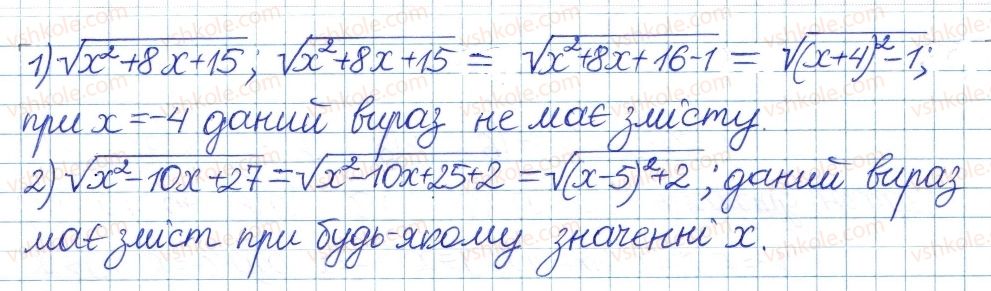 1) √(x²+8x+15); √(x²+8x+15) = √(x²+8x+16-1) = √((x+4)²-1);
при x=-4 даний вираз не має змісту.
2) √(x²-10x+27) = √(x²-10x+25+2) = √((x-5)²+2); даний вираз
має зміст при будь-якому значенні x.